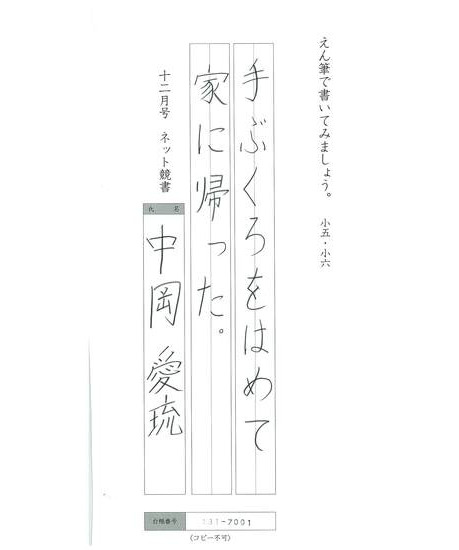 えん筆で書いてみましょう。 小五・小六
手ぶくろをはめて
家に帰った。
十二月号 ネット競書
氏 名
中岡 愛琉
台帳番号 131-7001
(コピー不可)